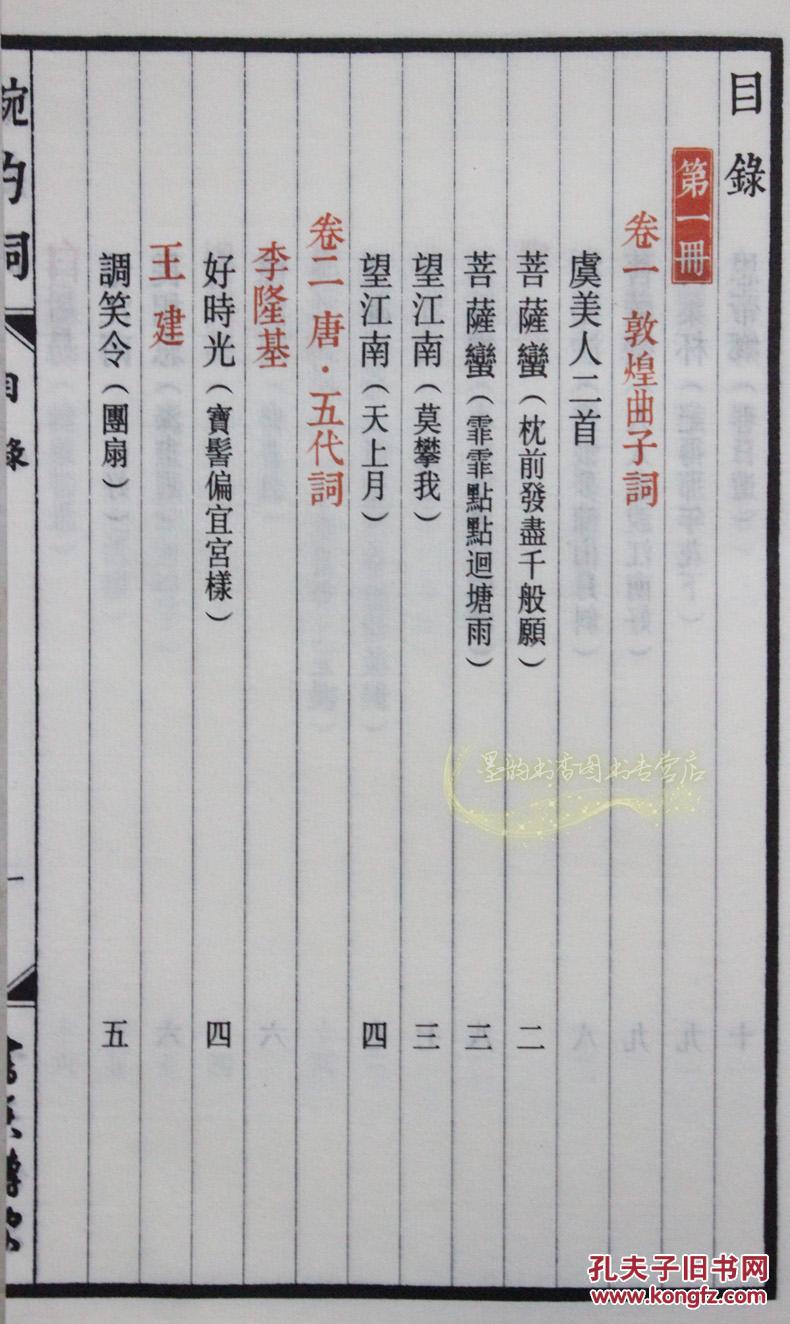 目錄
第一冊
卷一 敦煌曲子詞
虞美人二首
菩薩蠻（枕前發盡千般願） 二
菩薩蠻（霏霏點點迴塘雨） 三
望江南（莫攀我） 三
望江南（天上月） 四
卷二 唐·五代詞
李隆基
好時光（寶髻偏宜宮樣） 四
王建
調笑令（團扇） 五
婉約詞
目錄
一
墨韵书香图书专营店
孔夫子旧书网
www.kongfz.com